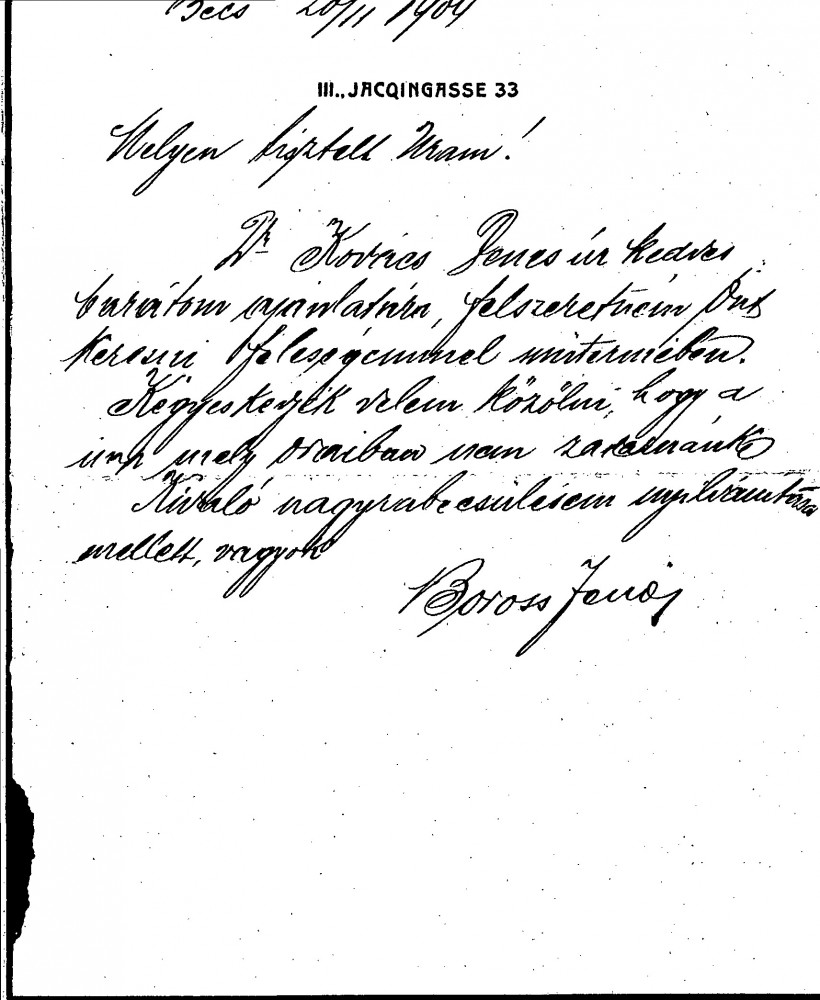 Bécs 20/11 1904
III., JACQINGASSE 33
Mélyen tisztelt Uram!
Dr Kovács Denes úr kedves
barátom ajánlatára, felszeretném Önt
keresni feleségemmel műtermében.
Kegyeskedjék velem közölni, hogy a
nap mely óráiban nem zavarnánk
Kiváló nagyrabecsülésem nyilvánítása
mellett, vagyok
Boross Jenő